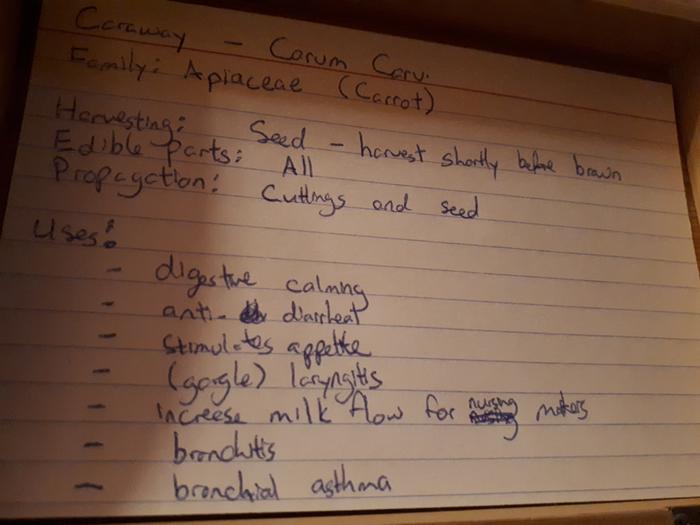 Caraway - Carum Carvi
Family: Apiaceae (Carrot)
Harvesting: Seed - harvest shortly before brown
Edible Parts: All
Propagation: Cuttings and seed
Uses:
- digestive calming
- anti- diarrheat
- Stimulates appetite
- (gargle) laryngitis
- increese milk flow for nursing mothers
- bronchitis
- bronchial asthma